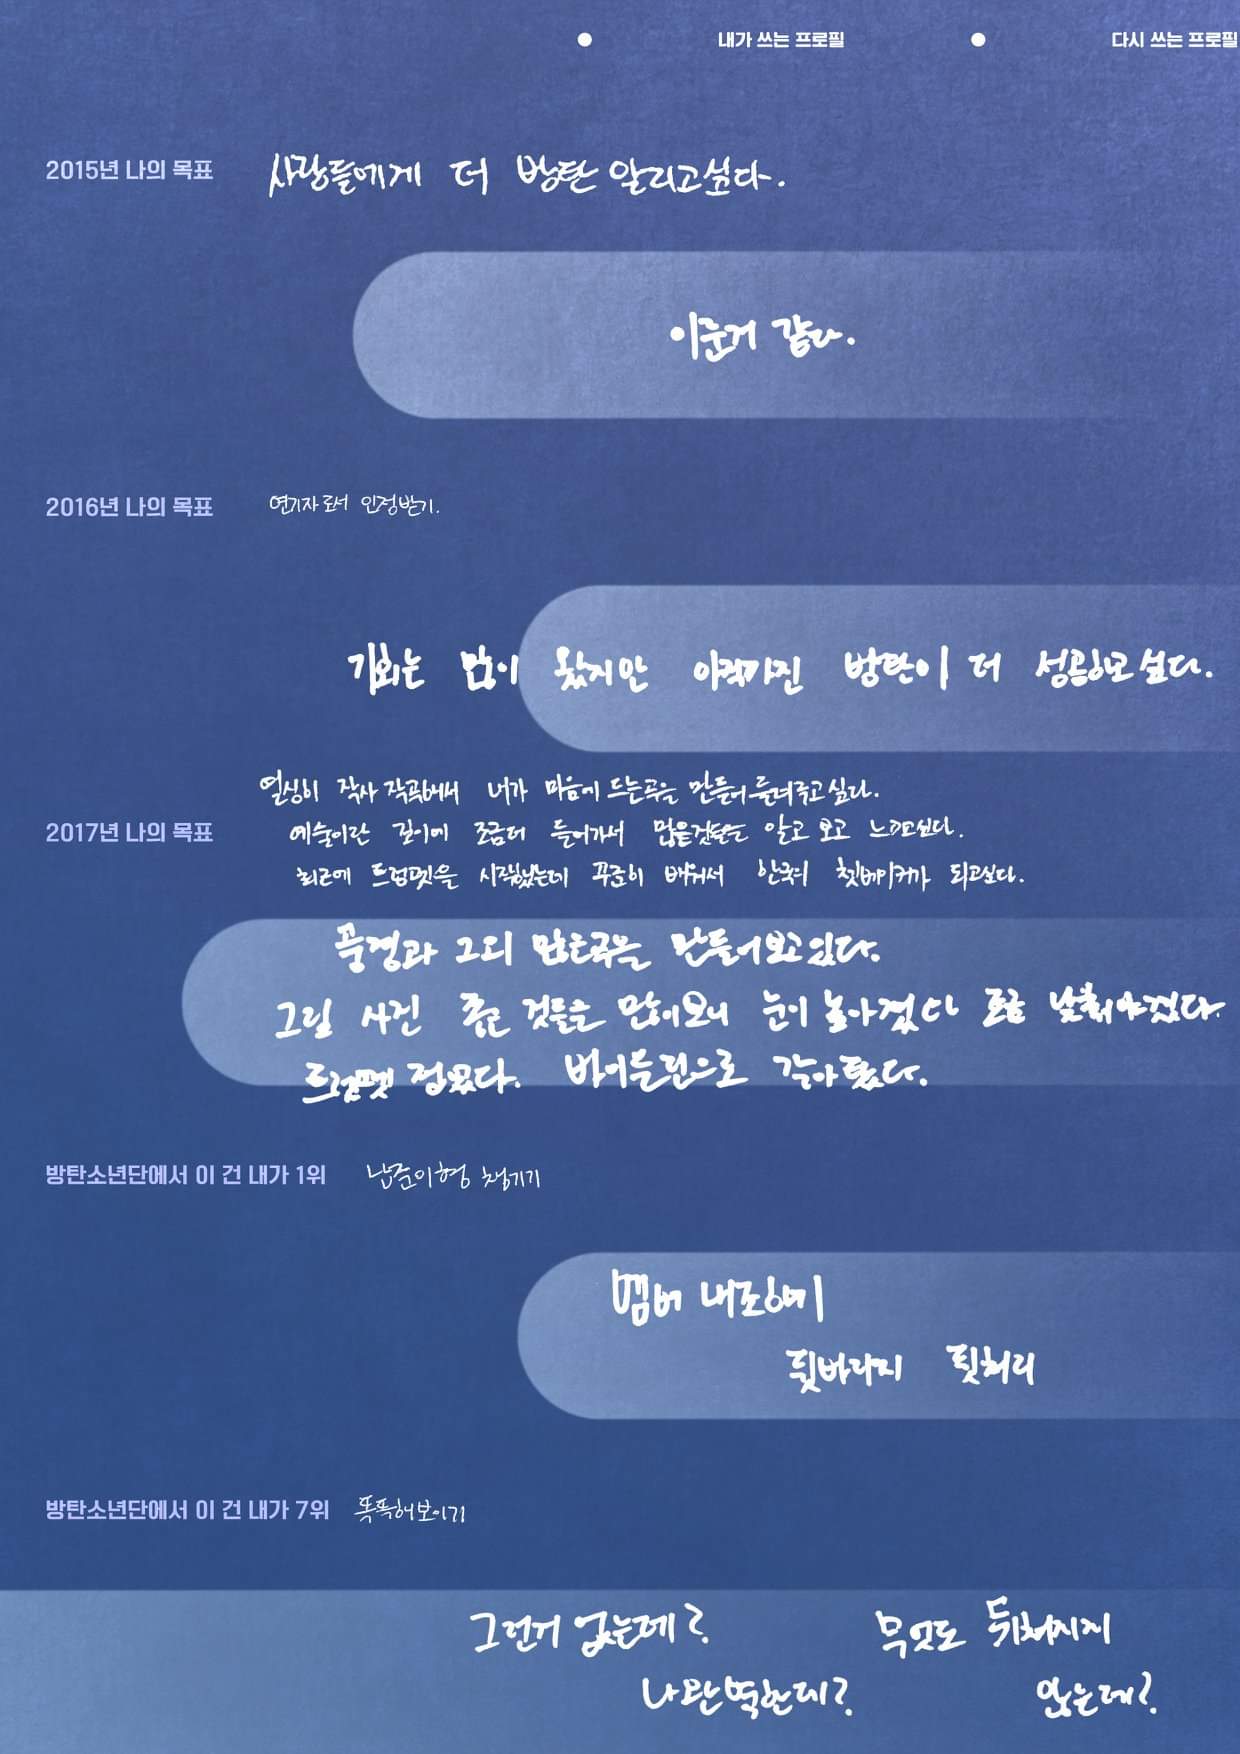 내가 쓰는 프로필
다시 쓰는 프로필
2015년 나의 목표
사람들에게 더 방탄 알리고싶다.
이룬거 같다.
2016년 나의 목표
연기자로서 인정받기.
기회는 많이 왔지만 아직까진 방탄이 더 성공하고싶다.
2017년 나의 목표
열심히 작사 작곡해서 내가 마음에 드는곡을 만들어 들려주고싶다.
예술이란 깊이에 조금더 들어가서 많은것들을 알고 보고 느끼고싶다.
최근에 트럼펫을 시작했는데 꾸준히 배워서 한국의 쳇베이커가 되고싶다.
풍경과 그외 많은곡을 만들어보고있다.
그림 사진 좋은 것들을 많이보니 눈이 높아졌다 조금 낮춰야겠다.
트럼펫 접었다. 바이올린으로 갈아탔다.
방탄소년단에서 이 건 내가 1위
남준이형 챙기기
멤버 내조하기
뒷바라지 뒷처리
방탄소년단에서 이 건 내가 7위
똑똑해보이기
그런거 없는데?
나 완벽한데?
무엇도 뒤쳐지지
않는데?